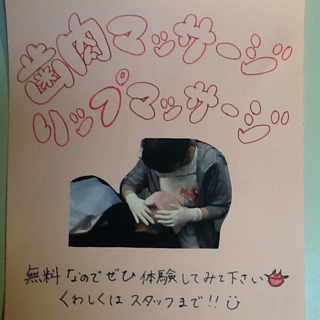 歯肉マッサージ
リップマッサージ
無料なのでぜひ体験してみて下さい
くわしくはスタッフまで!!